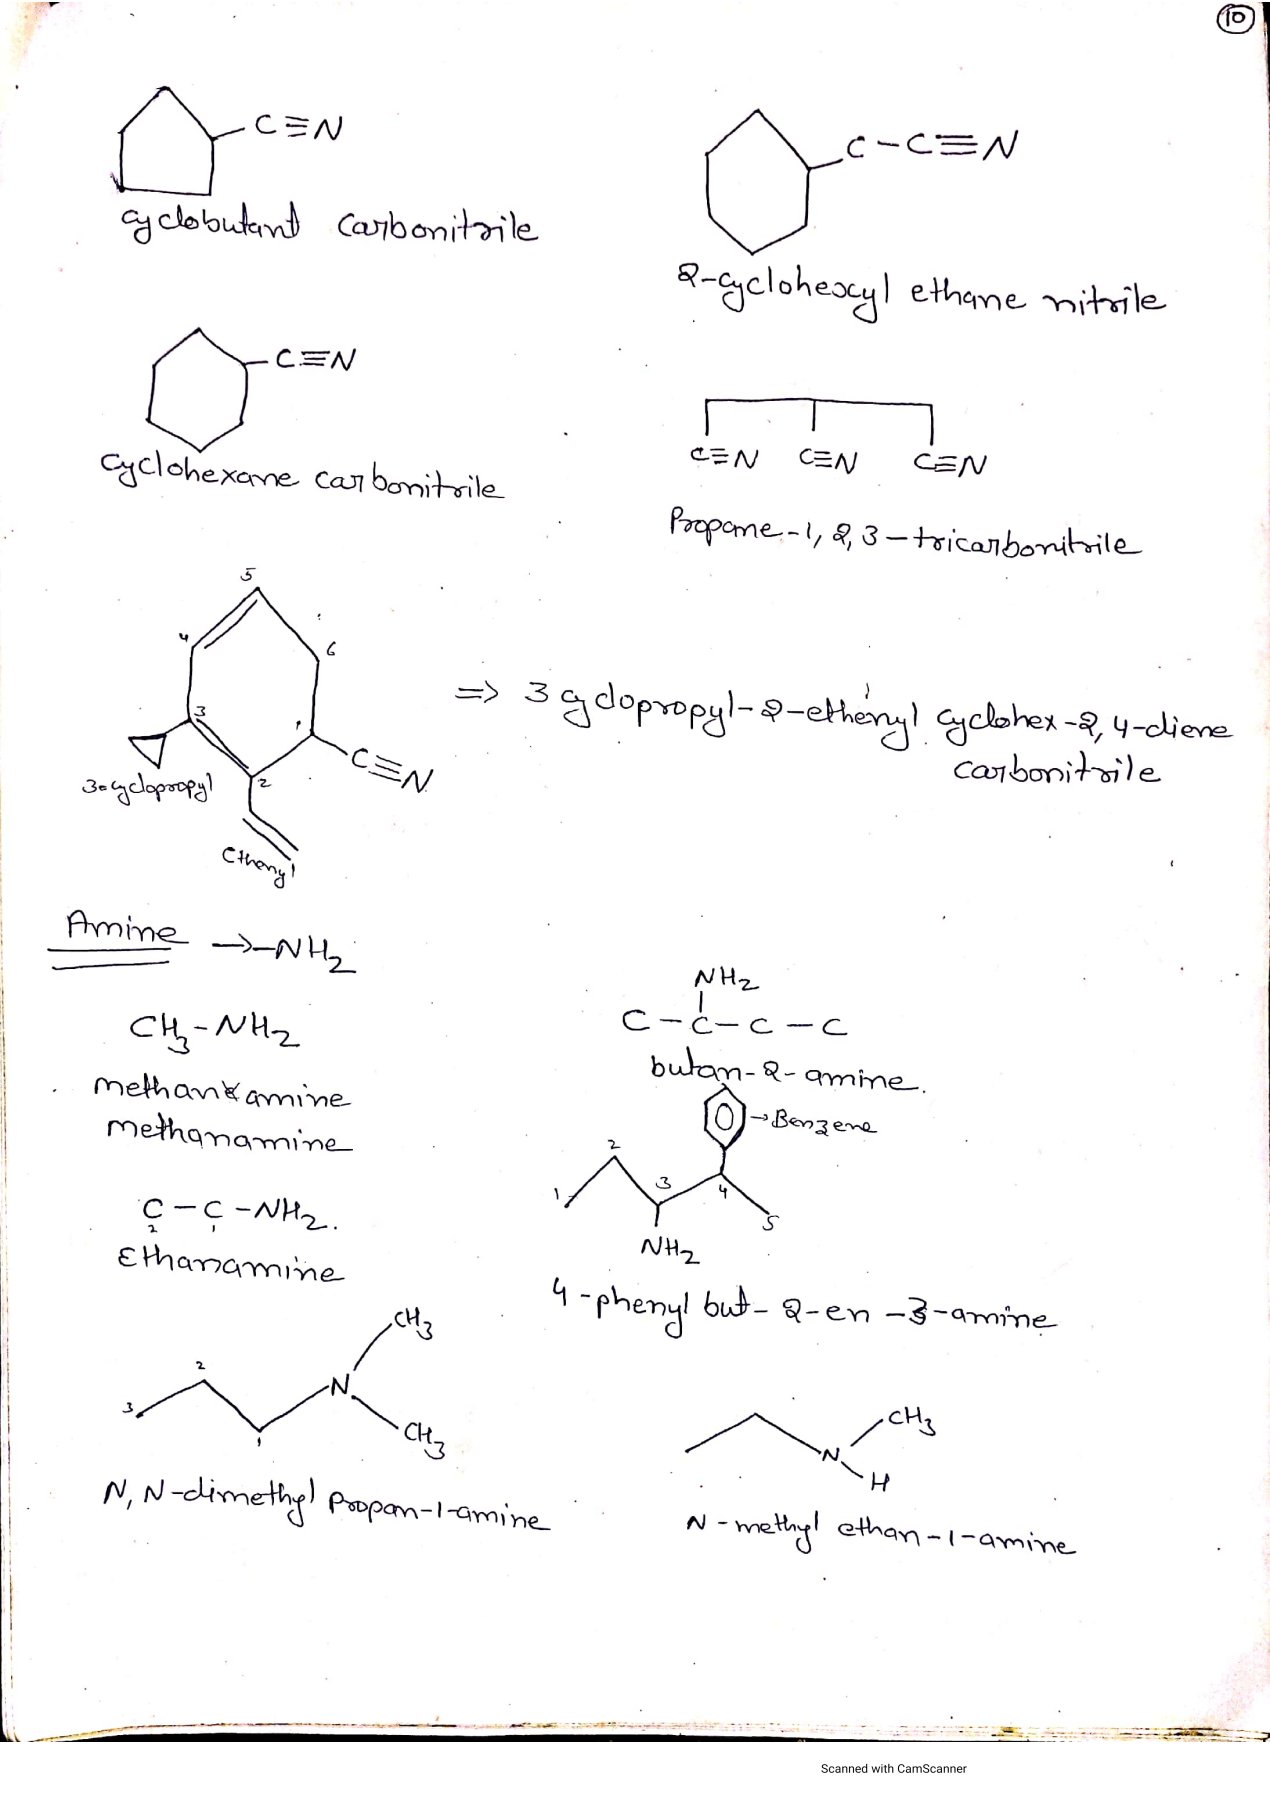 10
C≡N
cyclobutant carbonitrile
C-C≡N
2-cyclohexyl ethane nitrile
C≡N
Cyclohexane carbonitrile
C≡N C≡N C≡N
Propane-1,2,3-tricarbonitrile
5
4
6
3
1
2
C≡N
3-cyclopropyl
Ethenyl
=> 3 cyclopropyl-2-ethenyl cyclohex-2,4-diene
carbonitrile
Amine →-NH2
CH3-NH2
methan amine
methanamine
C-C-NH2.
2 1
Ethanamine
NH2
C-C-C-C
butan-2-amine.
→Benzene
1 2 3 4 5
NH2
4-phenyl but-2-en-3-amine
CH3
3 2 1
N
CH3
N,N-dimethyl propan-1-amine
CH3
N
H
N-methyl ethan-1-amine
Scanned with CamScanner